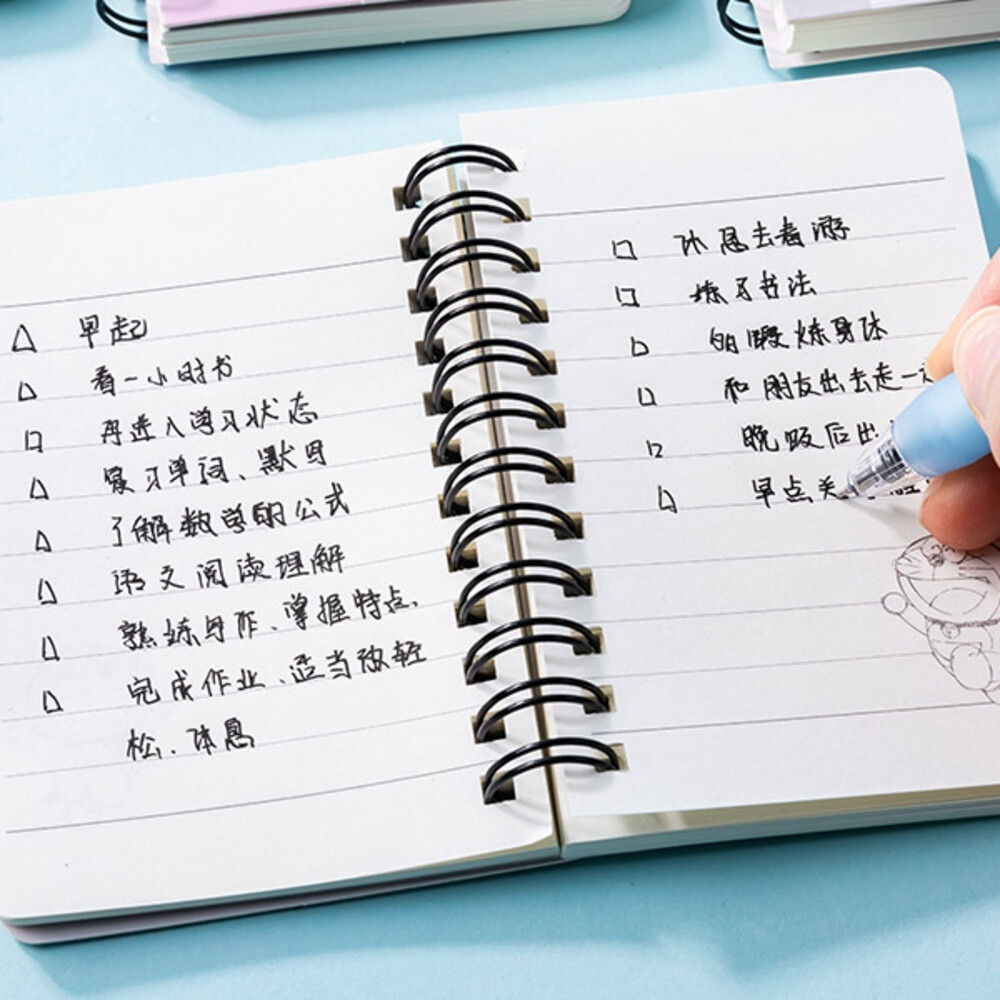 早起
看一小时书
再进入学习状态
复习单词、默写
了解数学的公式
语文阅读理解
熟练写作、掌握特点,
完成作业、适当放轻
松、休息
休息去看海
练习书法
锻炼身体
和朋友出去走一
晚饭后出
早点关